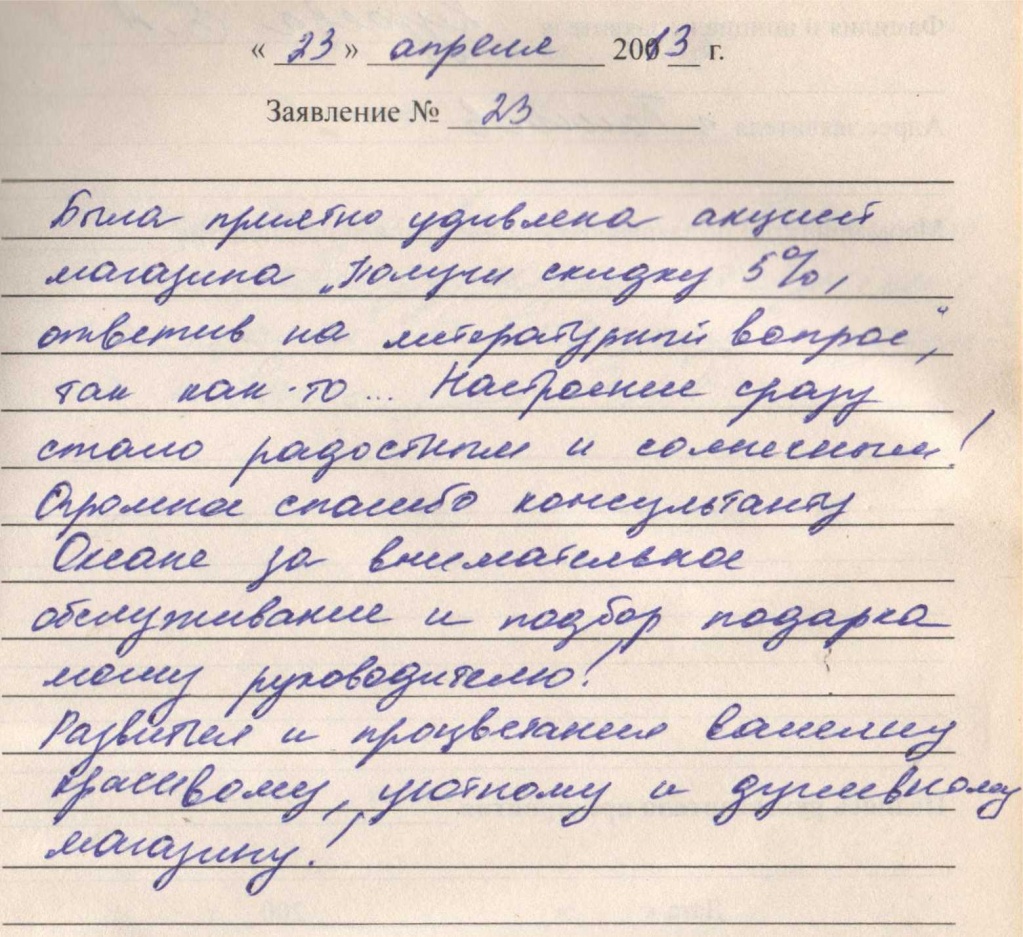 « 23 » апреля 2013 г.
Заявление № 23
Была приятно удивлена акцией
магазина „Получи скидку 5%,
ответив на литературный вопрос",
так как-то... Настроение сразу
стало радостным и солнечным!
Огромное спасибо консультанту
Оксане за внимательное
обслуживание и подбор подарка
моему руководителю!
Развития и процветания вашему
красивому, уютному и душевному
магазину!